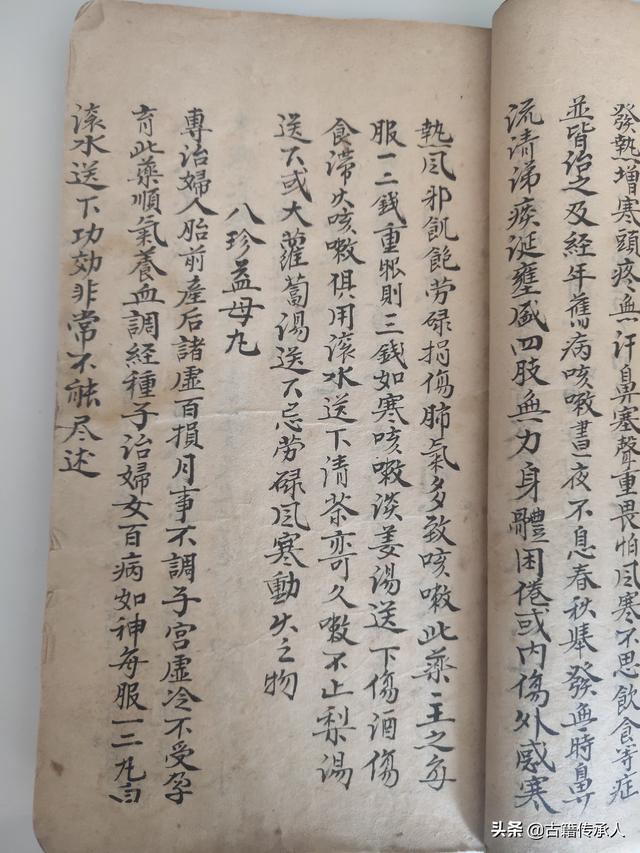 發熱增寒頭疼無汗鼻塞聲重畏怕風寒不思飲食等症
並皆治之及經年舊病咳嗽晝夜不息春秋舉發無時鼻
流清涕痰涎壅盛四肢無力身體困倦或內傷外感寒
熱風邪飢飽勞碌損傷肺氣多致咳嗽此藥一主之每
服一二錢重賬則三錢如寒咳嗽淡姜湯送下傷酒傷
食滯火咳嗽俱用滾水送下清茶亦可久嗽不止梨湯
送下或大蘿蔔湯送下忌勞碌風寒動火之物
八珍益母丸
專治婦人胎前產后諸虛百損月事不調子宮虛冷不受孕
育此藥順氣養血調經種子治婦女百病如神每服一二丸白
滾水送下功効非常不能尽述
头条 @古籍传承人